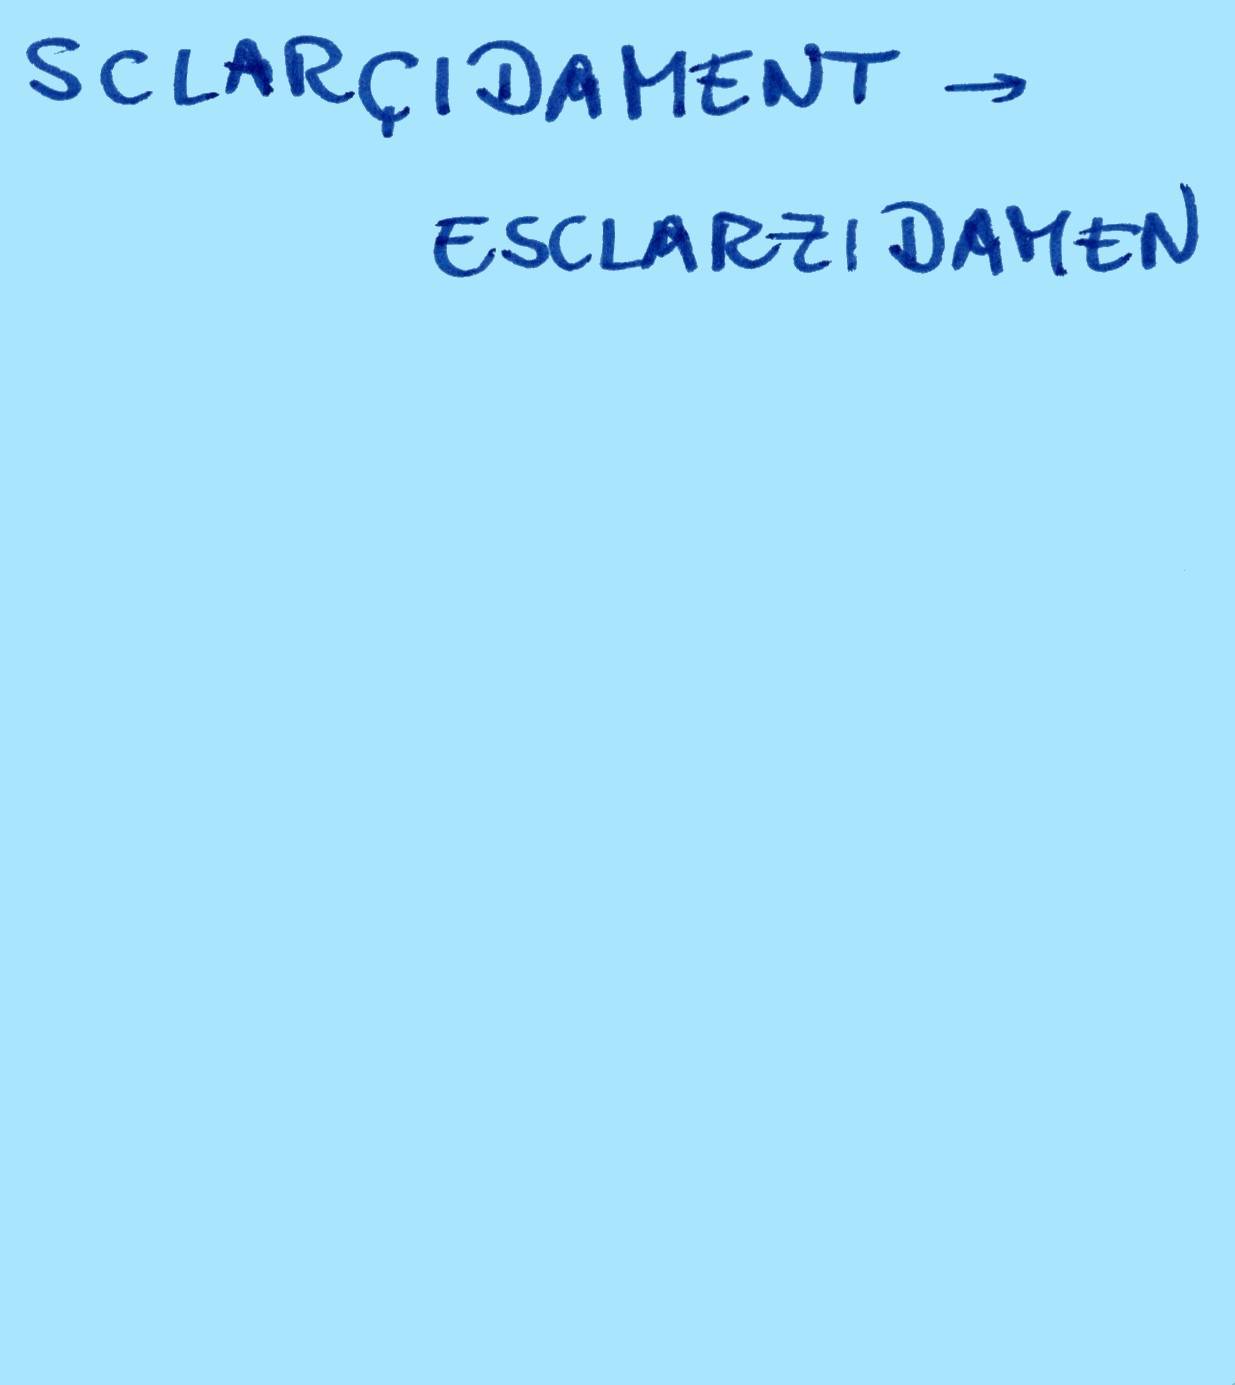 SCLARÇIDAMENT →
ESCLARZIDAMEN